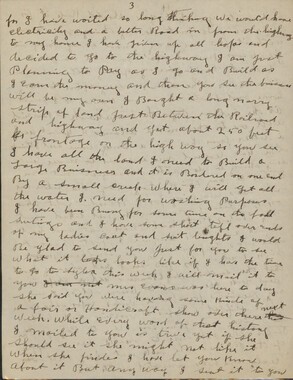 3
for I have waited so long thinking we would have
electricity and a better Road in from the highway
to my house I have given up all hopes and
decided to go to the highway I am just
Planning to Pay as I go and Build as
I earn the money and then you see the business
will be my own I Bought a long narrow
strip of land Just Between the Railroad
and highway and get about 250 feet
of frontage on the high way so you see
I have all the land I need to Build a
large Buisness and it is Bordered on one end
By a small creek where I will get all
the water I need for washing Purposes
I have been Busy for some time on
and I have some short odds ends
of my and I would
Be glad to send you Just for you to see
what it looks like if I have the time
to go to this week I will mail it to
you mrs was here to day
she said you were having some kinds of
a fair or Handicraft show over there next
week. While every word of that history
I mailed to you is true yet if she
should see it she might not like it
when she finds I have let you know
about it But any way I sent it to you